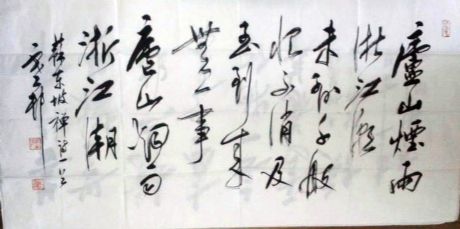 廬山煙雨
浙江潮
未到千般
恨不消及
至到來
無一事
廬山烟雨
浙江潮
蘇東坡禪詩一首